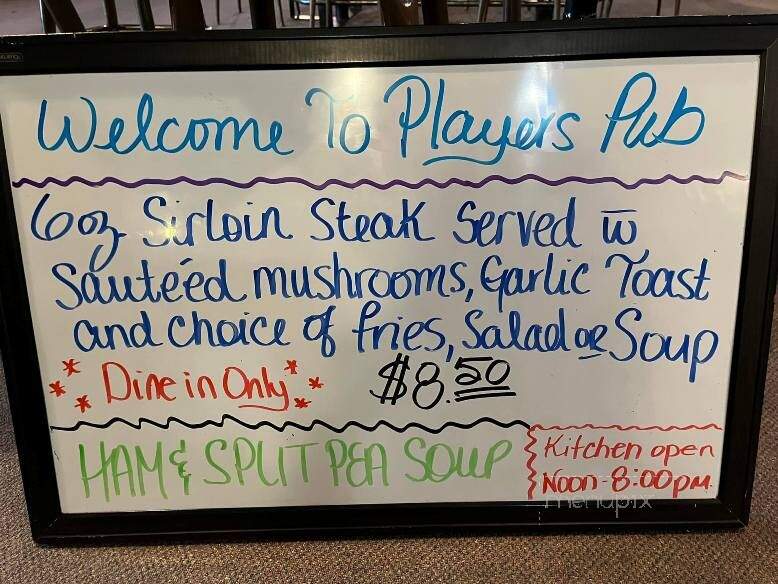 Welcome To Players Pub
6oz Sirloin Steak Served w
Sautéed mushrooms, Garlic Toast
and choice of fries, Salad or Soup
* Dine in Only * $8.50
HAM & SPLIT PEA SOUP
Kitchen open
Noon-8:00pm.
menupix